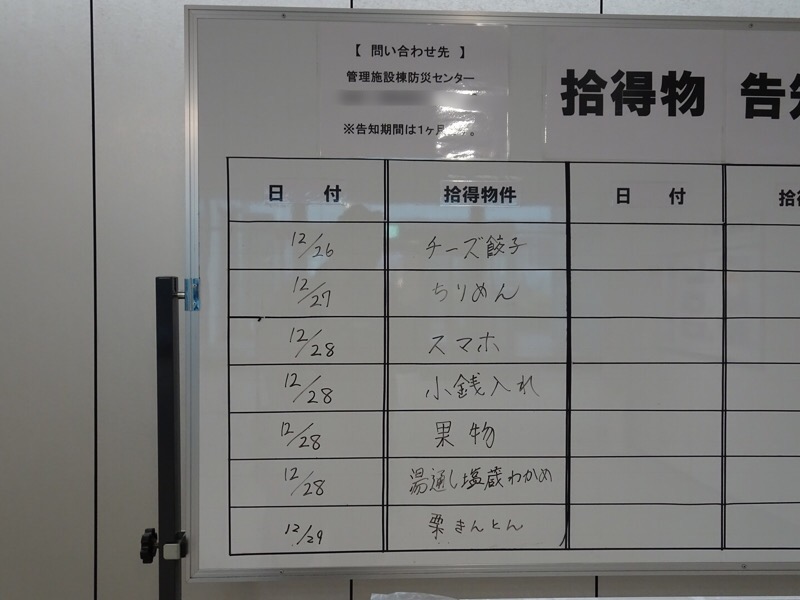 【 問い合わせ先 】
管理施設棟防災センター
※告知期間は1ヶ月です。
拾得物 告知
日 付 拾得物件 日 付 拾得
12/26 チーズ餃子
12/27 ちりめん
12/28 スマホ
12/28 小銭入れ
12/28 果物
12/28 湯通し塩蔵わかめ
12/29 栗きんとん